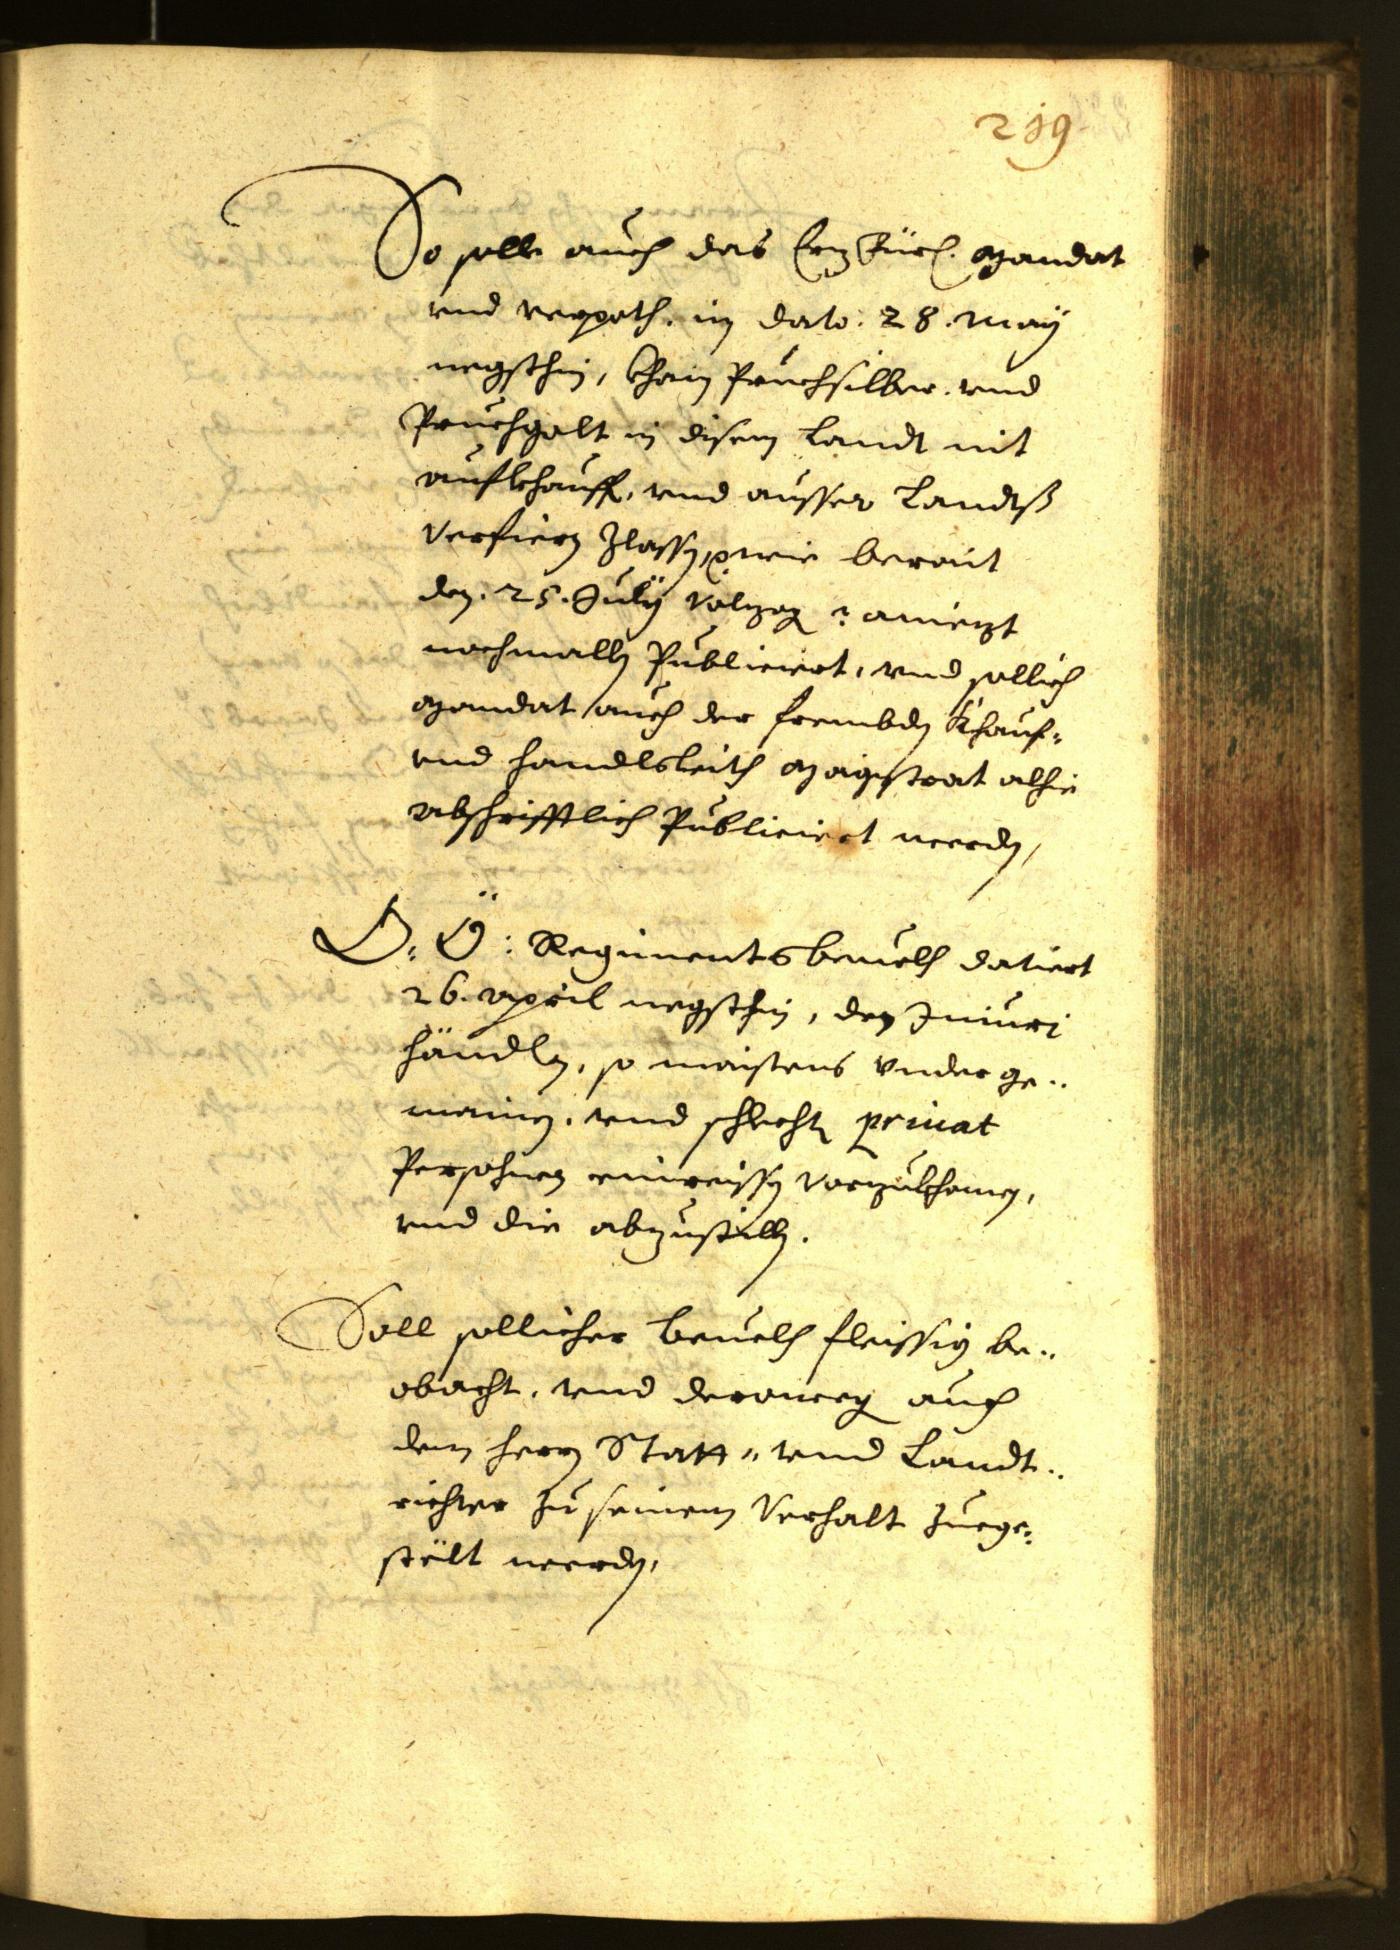 219
So solle auch das Erzfürs. Mandat
vnd verpoth. in dato. 28. May
negsthin, khain Pruchsilber. vnd
Pruchgolt in disem Landt nit
aufkhauffen, vnd ausser Landtß
verfiern Zlassen, wie berait
den. 25. July volzogen amiezt
nochmalln Publiciert, vnd sollich
Mandat auch der frembden Khauf-
vnd Handlsleith Magistrat alhie
abschrifftlich Publiciert werden,
O: Ö: Regiments beuelch datiert
26. April negsthin, den Iniuri
händlen, so maistens vnder ge-
mainen. vnd schlechten priuat
Persohnen einreissen vorzukhomen,
vnd die abzustellen.
Soll sollicher beuelch fleissig be-
obacht, vnd derowegen auch
dem Herrn Statt- vnd Landt-
richter Zu seinem Verhalt Zuege-
stölt werden,